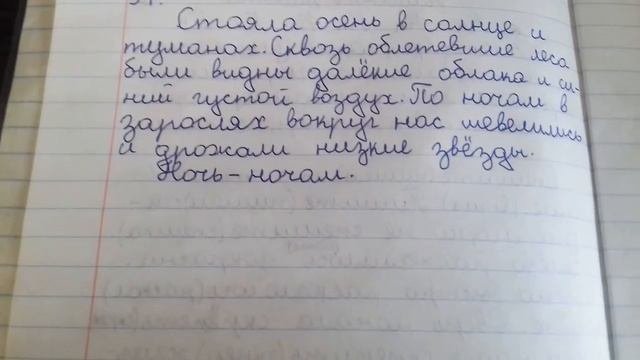 Стояла осень в солнце и
туманах. Сквозь облетевшие леса
были видны далёкие облака и си-
ний густой воздух. По ночам в
зарослях вокруг нас шевелились
и дрожали низкие звёзды.
Ночь - ночам.